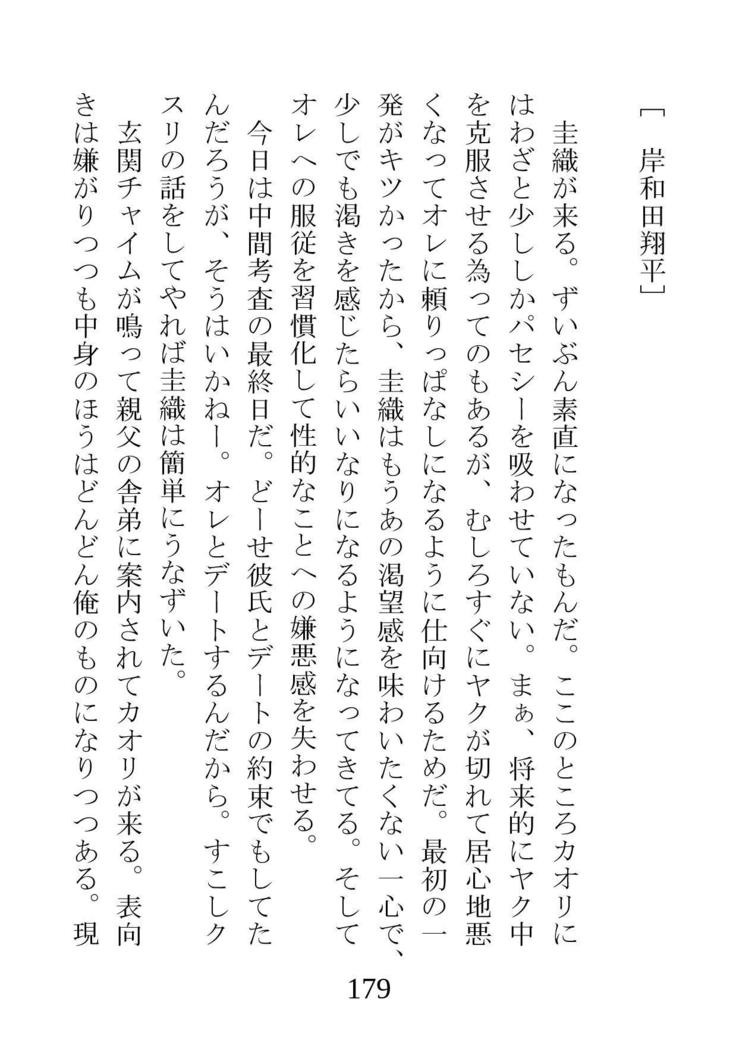 ［　岸和田翔平］
圭織が来る。ずいぶん素直になったもんだ。ここのところカオリに
はわざと少ししかパセシーを吸わせていない。まぁ、将来的にヤク中
を克服させる為ってのもあるが、むしろすぐにヤクが切れて居心地悪
くなってオレに頼りっぱなしになるように仕向けるためだ。最初の一
発がキツかったから、圭織はもうあの渇望感を味わいたくない一心で、
少しでも渇きを感じたらいいなりになるようになってきてる。そして
オレへの服従を習慣化して性的なことへの嫌悪感を失わせる。
今日は中間考査の最終日だ。どーせ彼氏とデートの約束でもしてた
んだろうが、そうはいかねー。オレとデートするんだから。すこしク
スリの話をしてやれば圭織は簡単にうなずいた。
玄関チャイムが鳴って親父の舎弟に案内されてカオリが来る。表向
きは嫌がりつつも中身のほうはどんどん俺のものになりつつある。現
179